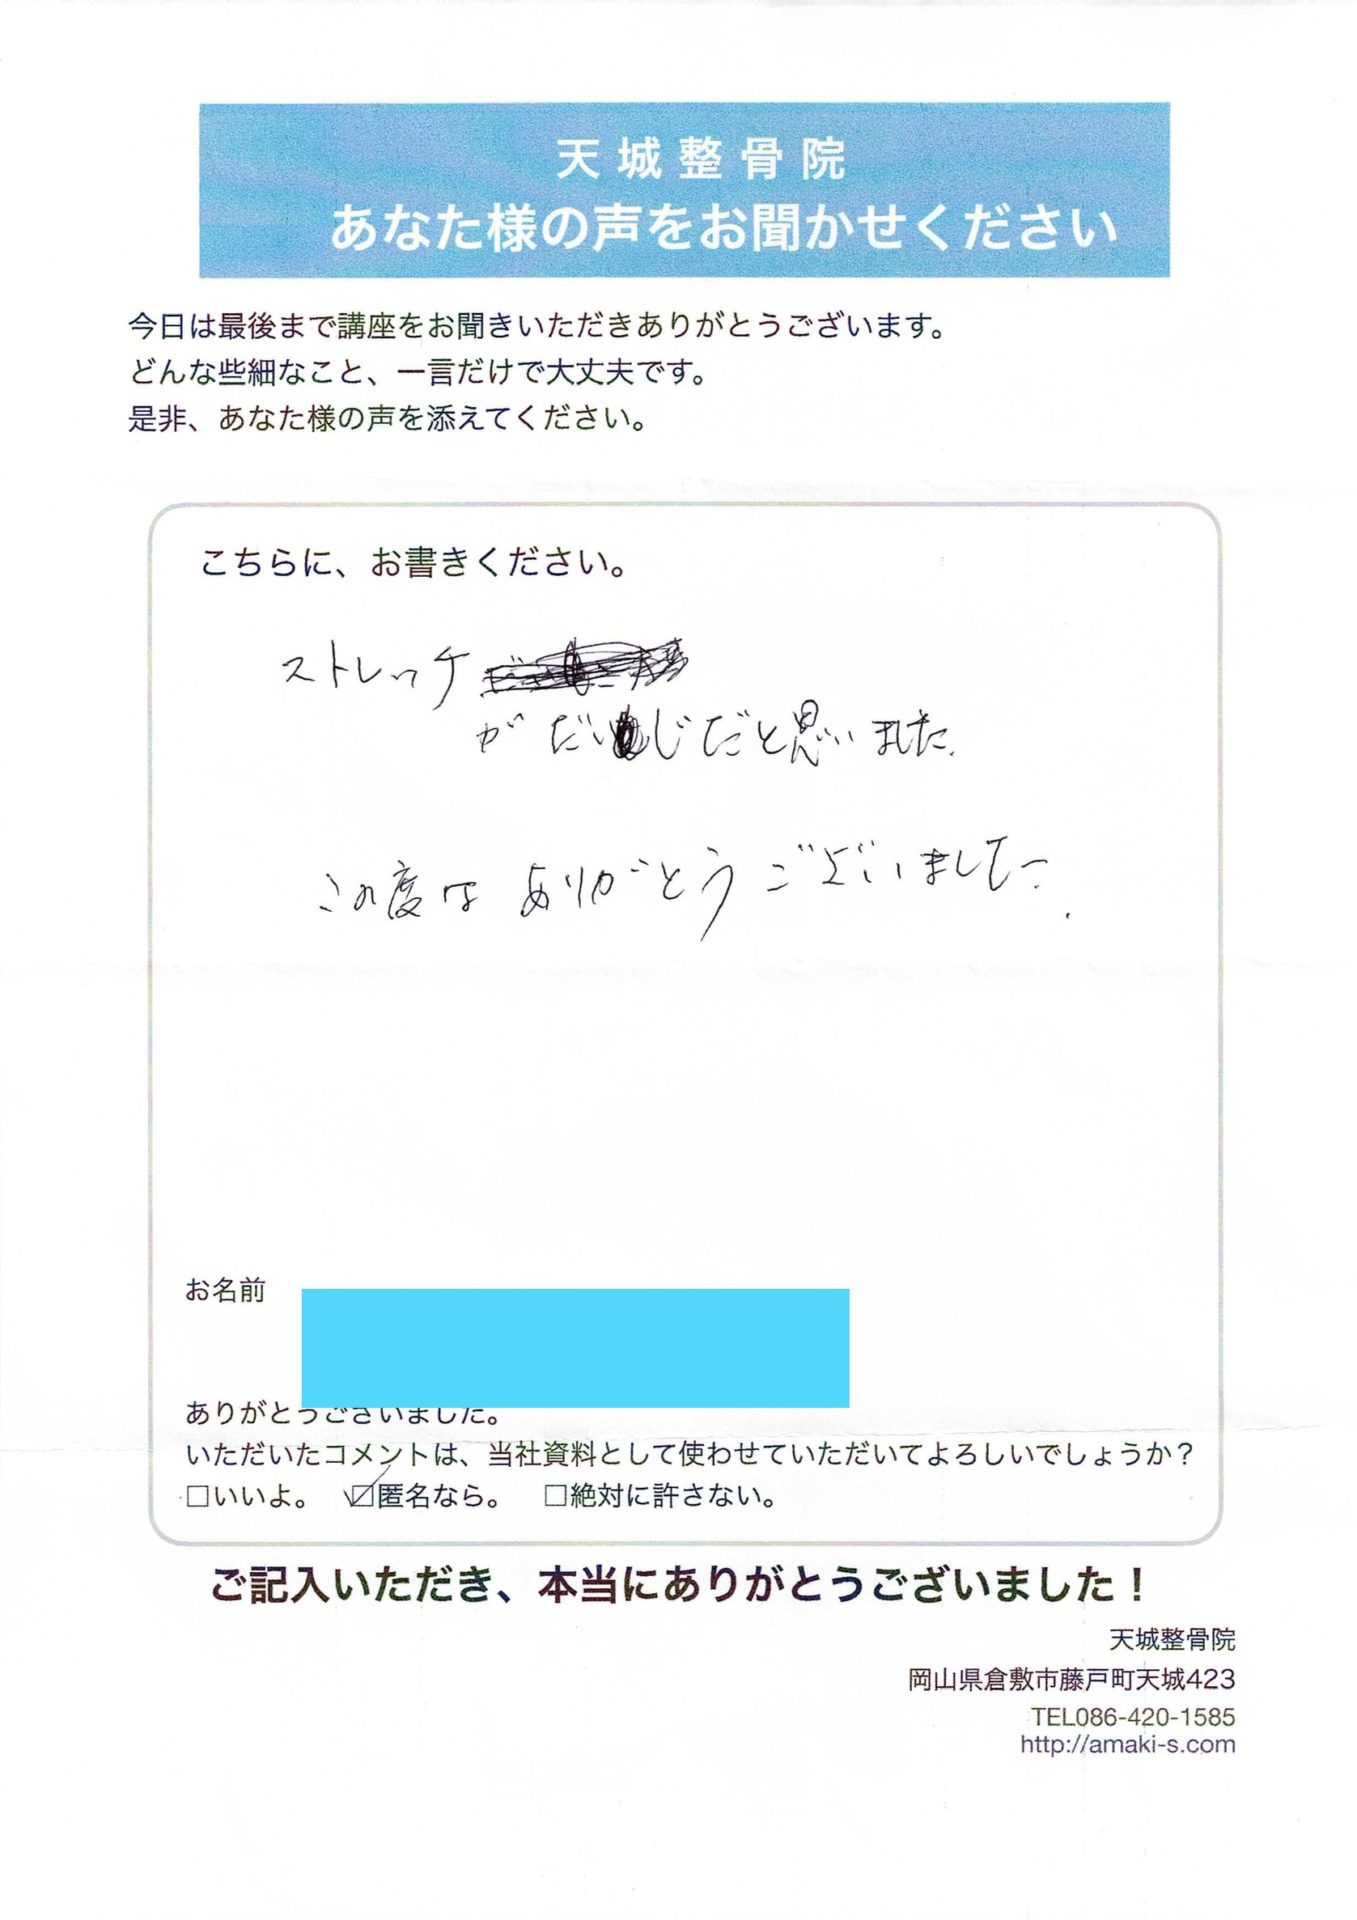 天城整骨院
あなた様の声をお聞かせください
今日は最後まで講座をお聞きいただきありがとうございます。
どんな些細なこと、一言だけで大丈夫です。
是非、あなた様の声を添えてください。
こちらに、お書きください。
ストレッチ
がだいじだと思いました.
この度は ありがとう ございました.
お名前
ありがとうございました。
いただいたコメントは、当社資料として使わせていただいてよろしいでしょうか？
□いいよ。 ☑匿名なら。 □絶対に許さない。
ご記入いただき、本当にありがとうございました！
天城整骨院
岡山県倉敷市藤戸町天城423
TEL086-420-1585
http://amaki-s.com